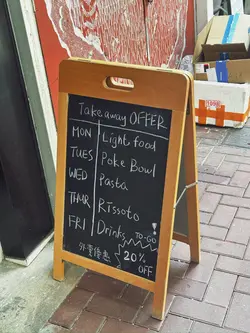 Takeaway OFFER
MON Light food
TUES Poke Bowl
WED Pasta
THUR Rissoto
FRI Drinks
TO-GO
外賣優惠 20% OFF